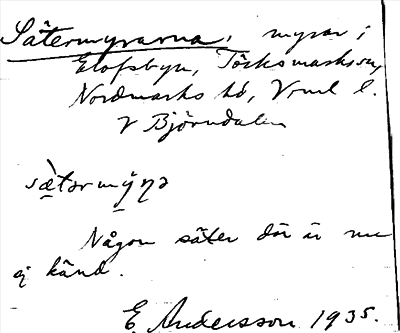 Sätermyrarna, myrar i
Elofsbyn, Töcksmarks sn,
Nordmarks hd, Vrml l.
V Björndalen
sæ̀tərmy̨ṇə
Någon säter där är nu
ej känd.
E. Andersson 1935.